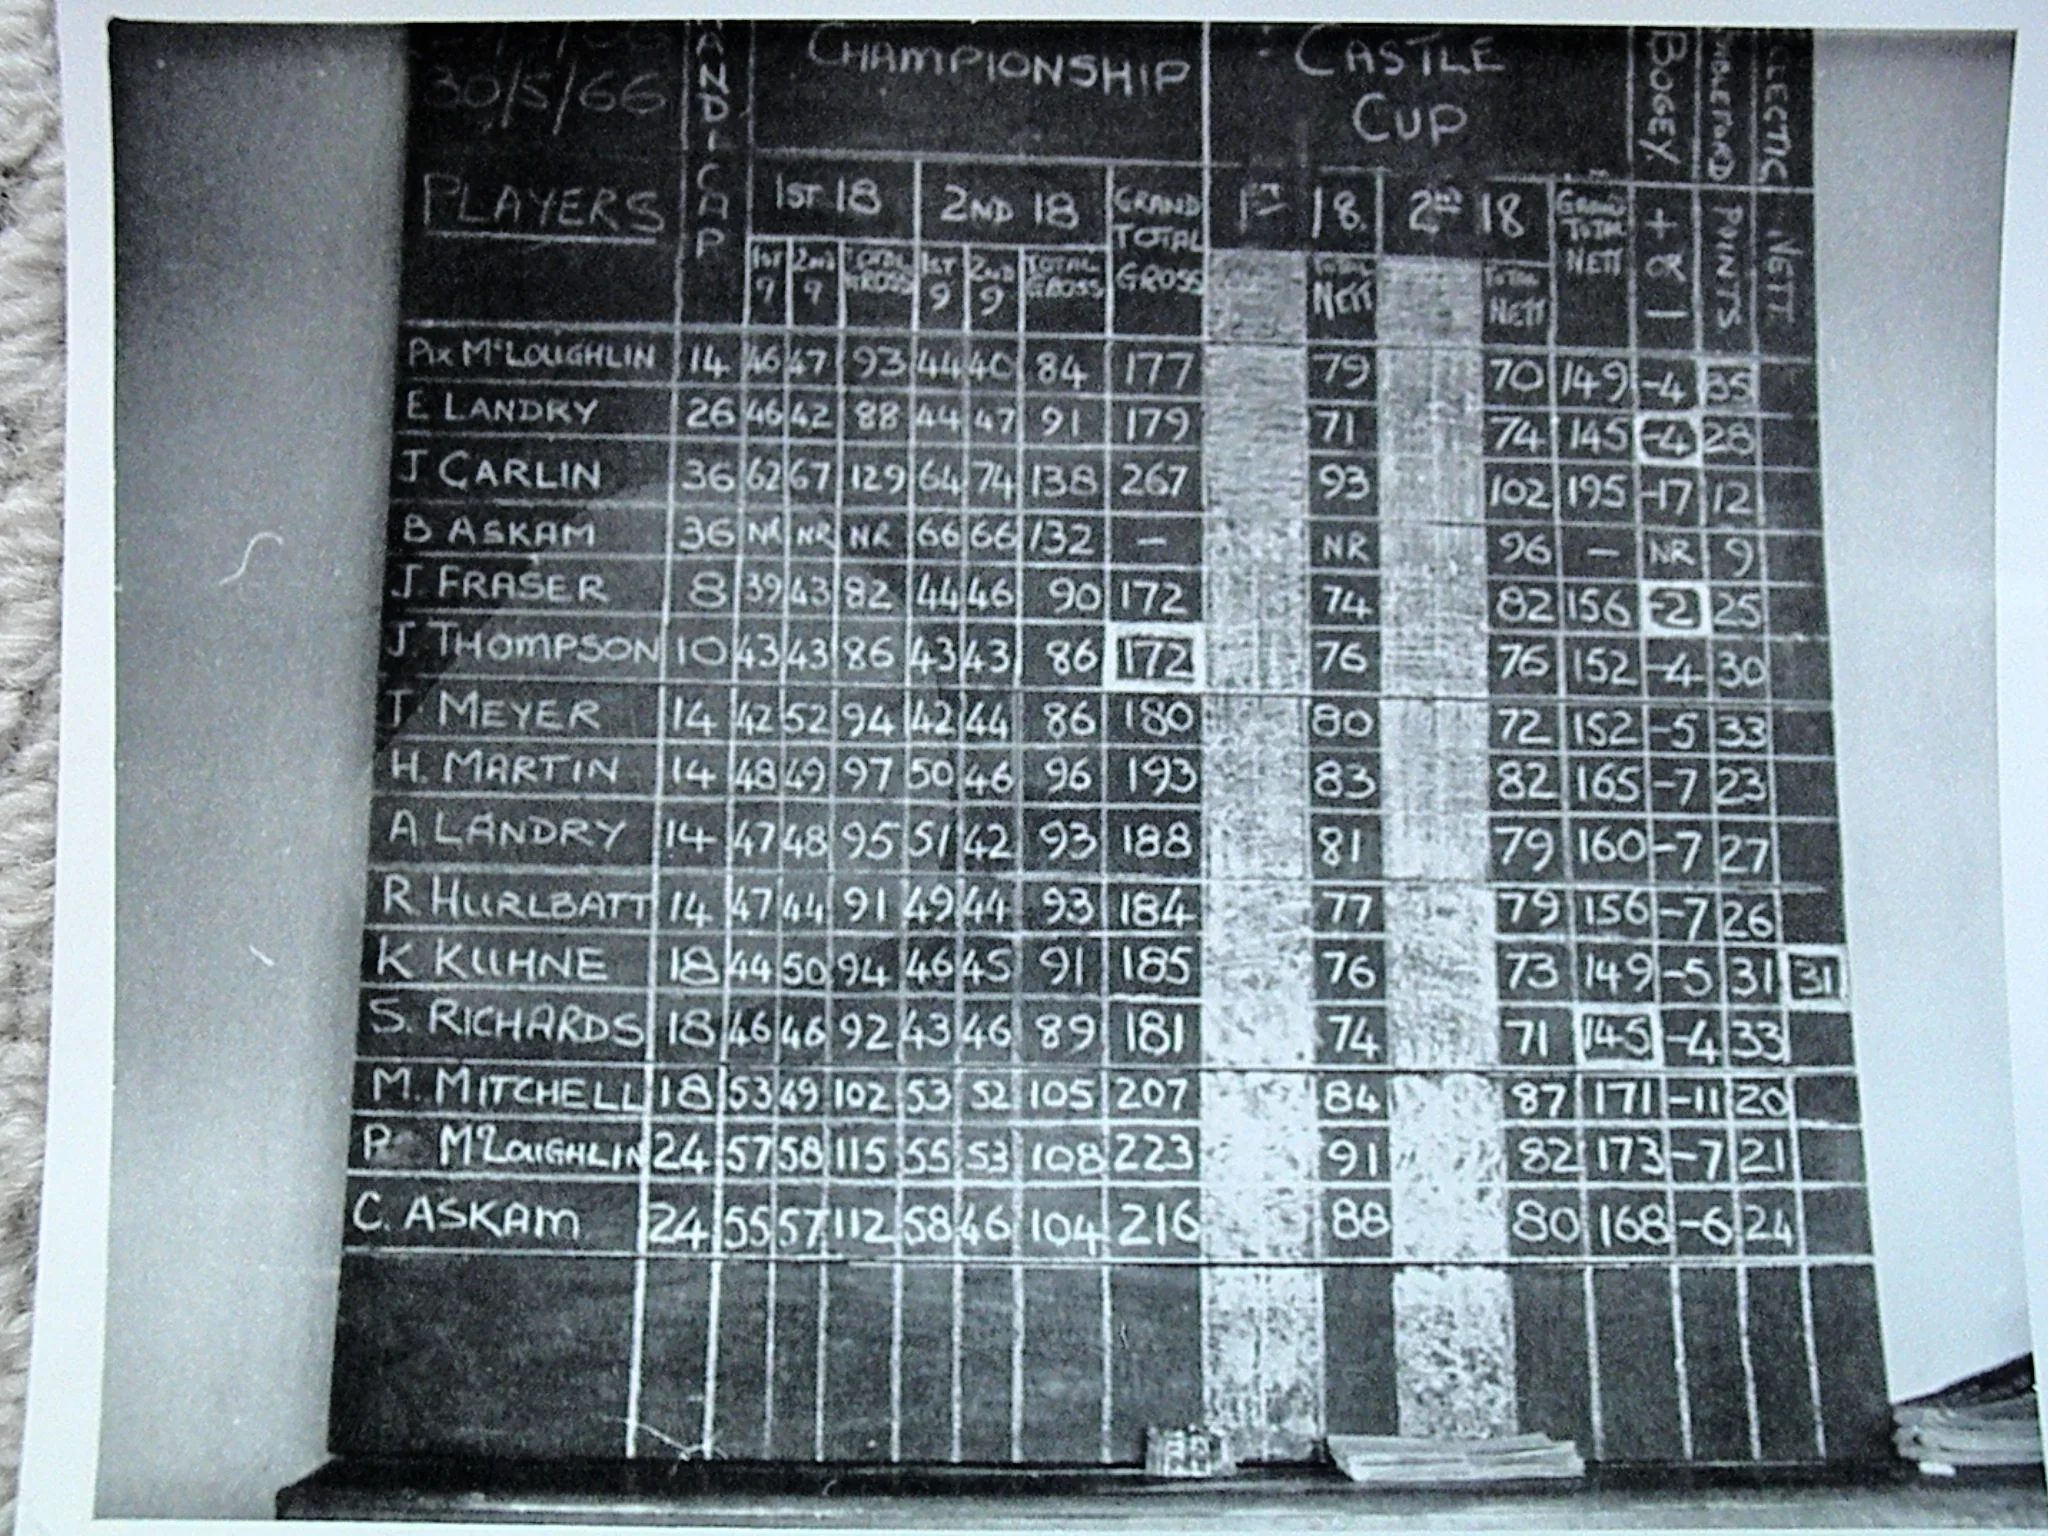 30/5/66
HANDICAP
CHAMPIONSHIP
CASTLE CUP
BOGEY + OR -
POINTS
NETT
PLAYERS
1ST 18
2ND 18
GRAND TOTAL GROSS
1ST 18.
2ND 18
GRAND TOTAL NETT
1ST 9 2ND 9 TOTAL GROSS 1ST 9 2ND 9 TOTAL GROSS TOTAL NETT TOTAL NETT
PIX McLOUGHLIN 14 46 47 93 44 40 84 177 79 70 149 -4 35
E LANDRY 26 46 42 88 44 47 91 179 71 74 145 -4 28
J CARLIN 36 62 67 129 64 74 138 267 93 102 195 -17 12
B ASKAM 36 NR NR NR 66 66 132 — NR 96 — NR 9
J. FRASER 8 39 43 82 44 46 90 172 74 82 156 -2 25
J. THOMPSON 10 43 43 86 43 43 86 172 76 76 152 -4 30
T. MEYER 14 42 52 94 42 44 86 180 80 72 152 -5 33
H. MARTIN 14 48 49 97 50 46 96 193 83 82 165 -7 23
A LANDRY 14 47 48 95 51 42 93 188 81 79 160 -7 27
R HURLBATT 14 47 44 91 49 44 93 184 77 79 156 -7 26
K KUHNE 18 44 50 94 46 45 91 185 76 73 149 -5 31 31
S. RICHARDS 18 46 46 92 43 46 89 181 74 71 145 -4 33
M. MITCHELL 18 53 49 102 53 52 105 207 84 87 171 -11 20
P McLOUGHLIN 24 57 58 115 55 53 108 223 91 82 173 -7 21
C. ASKAM 24 55 57 112 58 46 104 216 88 80 168 -6 24